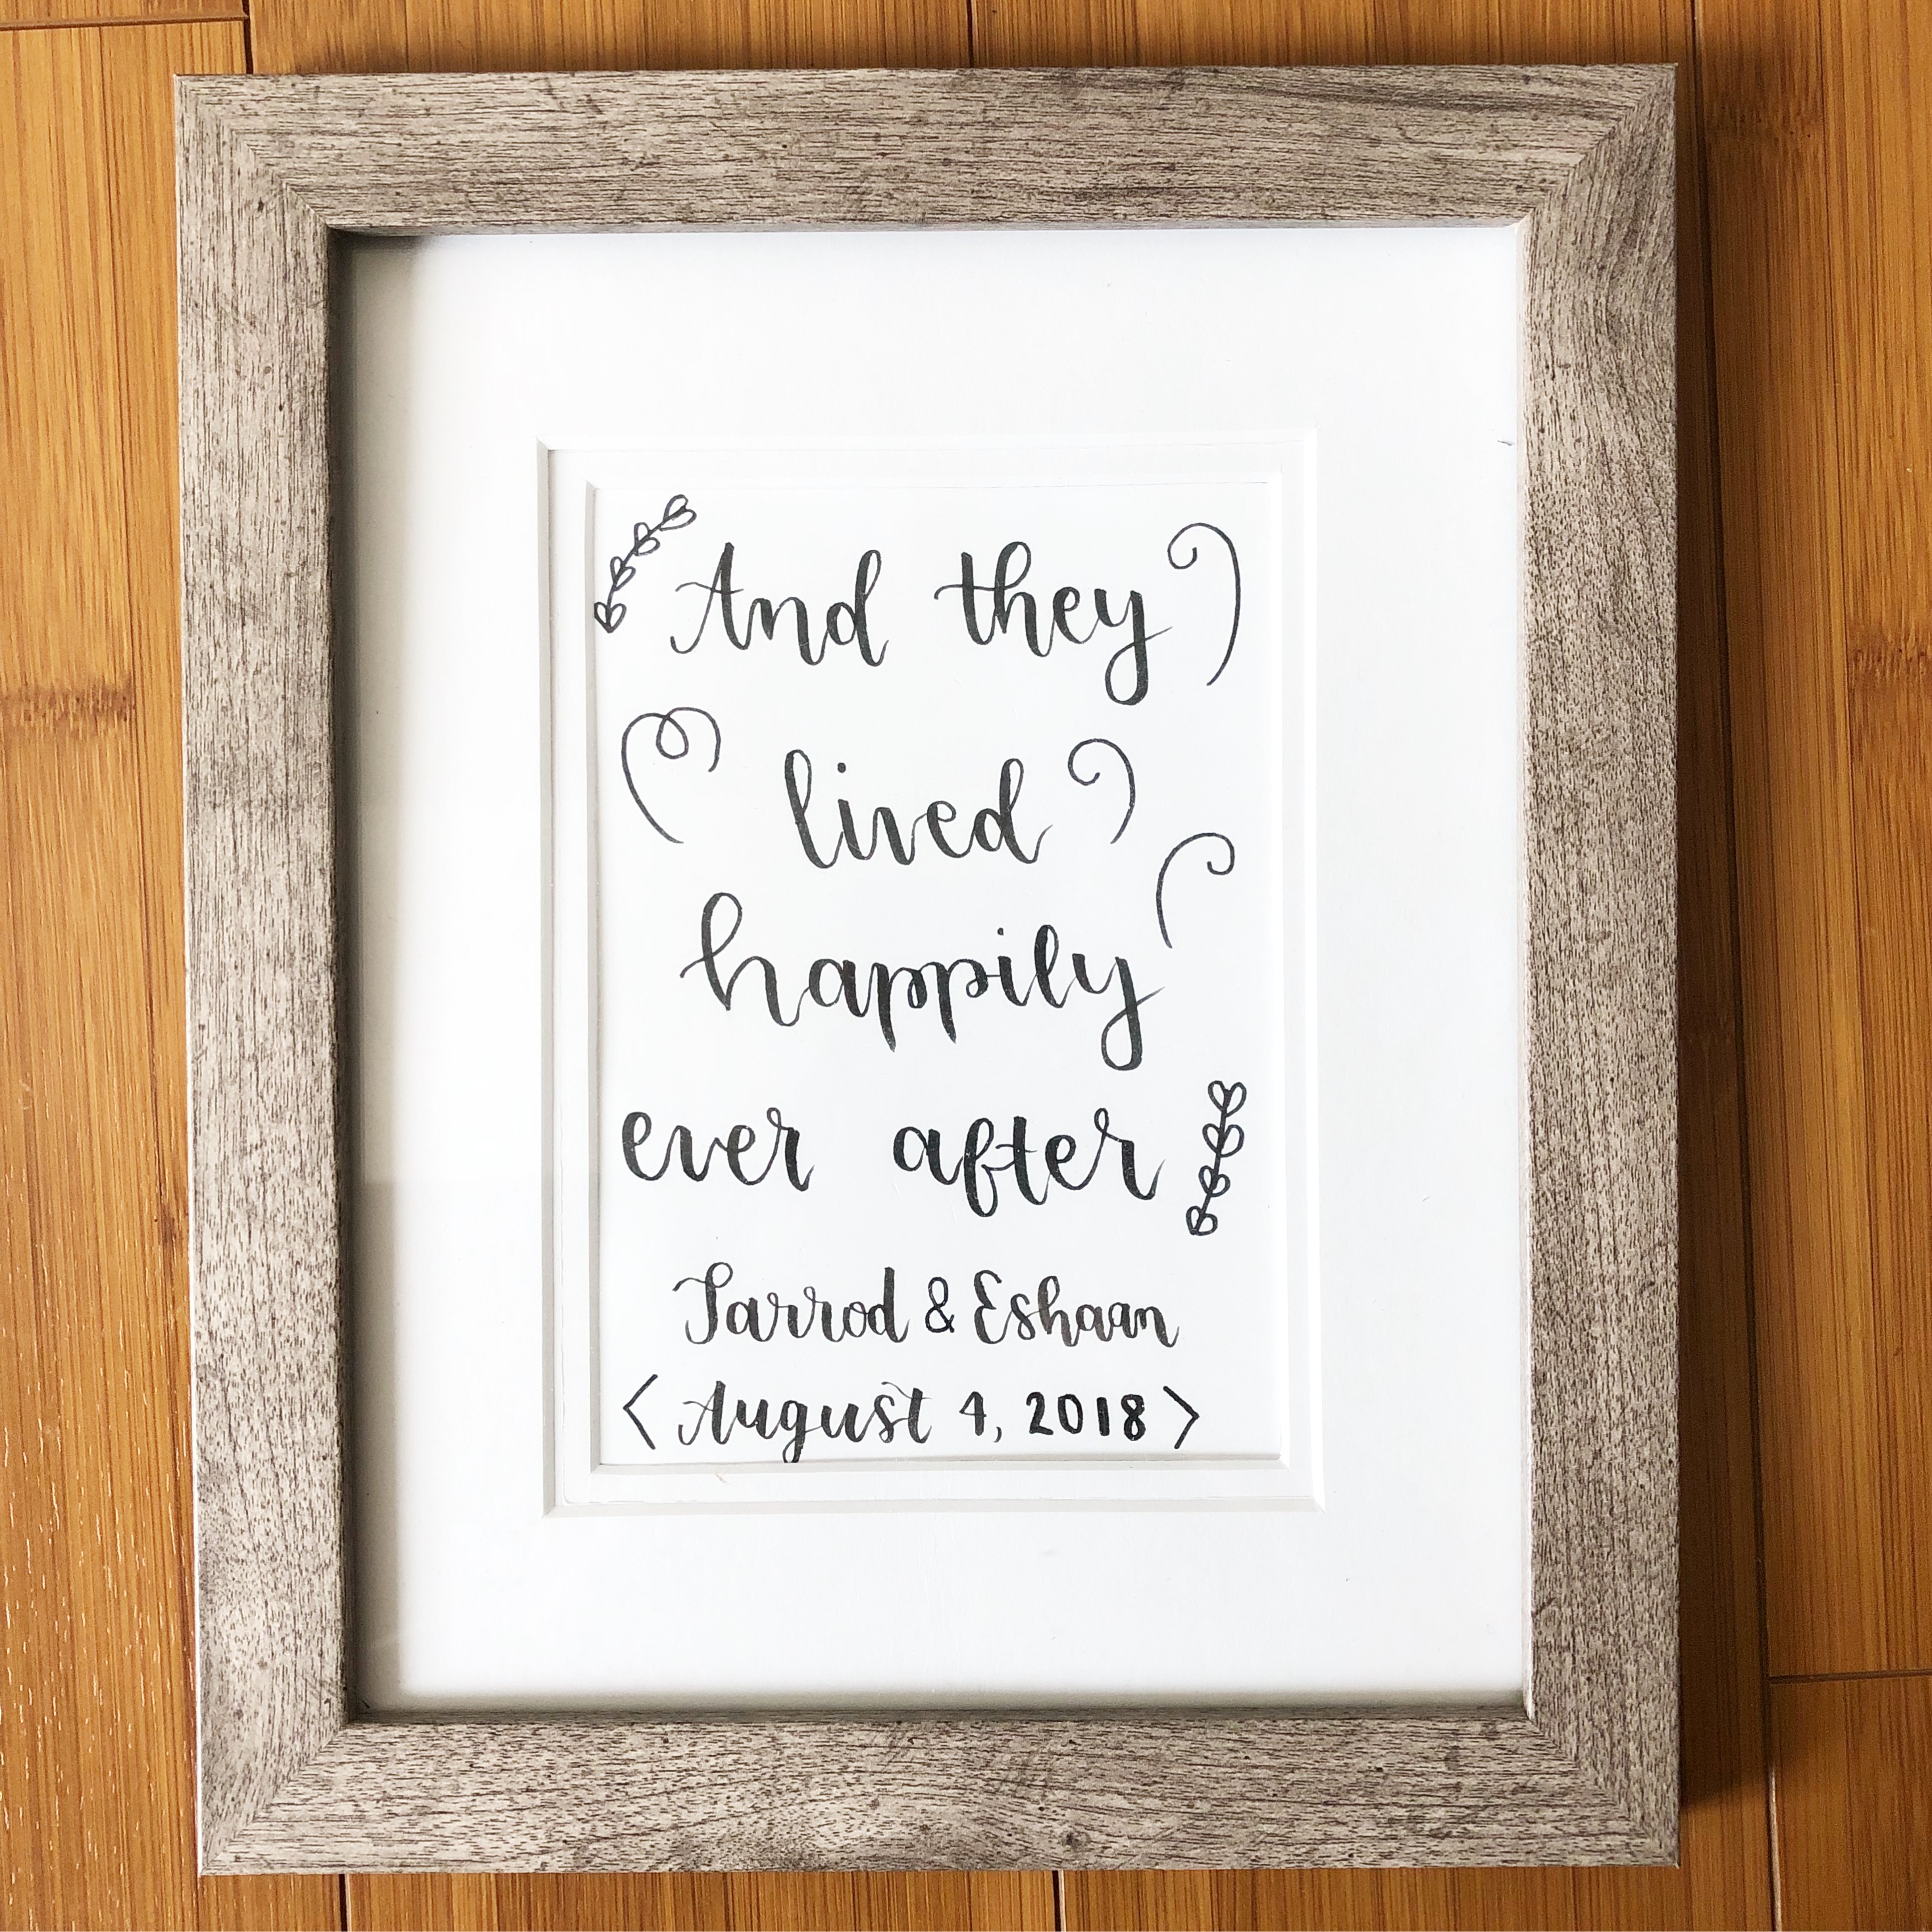 And they
lived
happily
ever after
Jarrod & Eshaan
< August 4, 2018 >